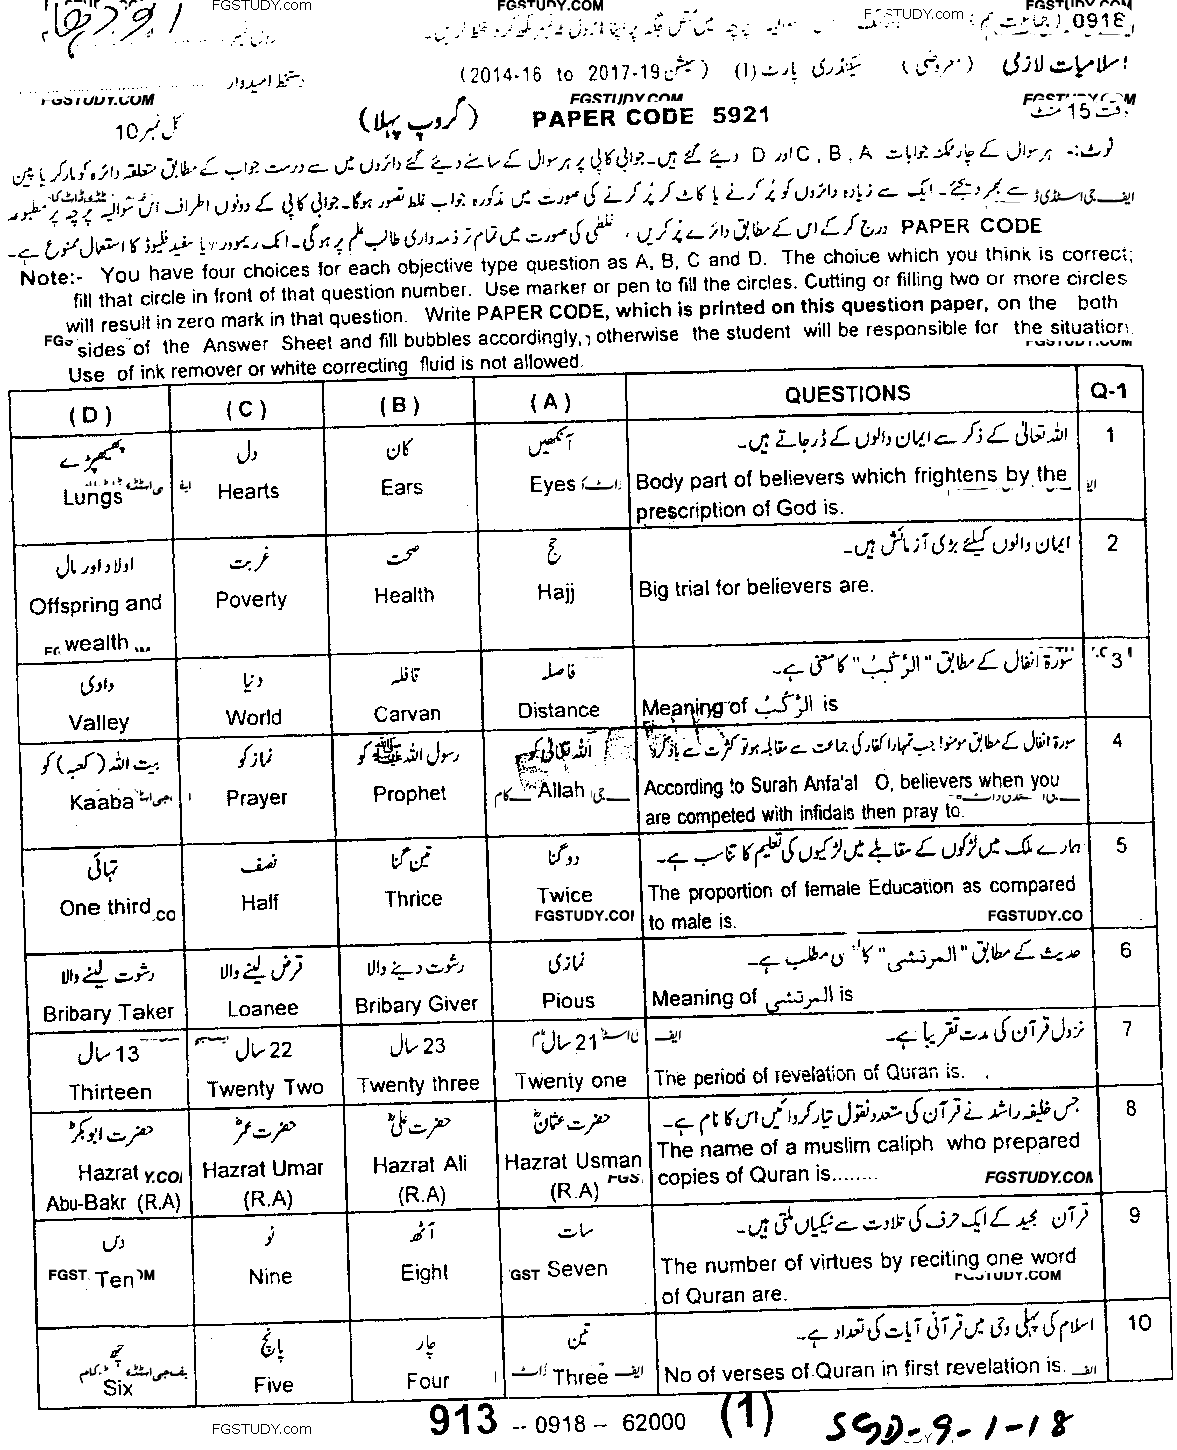 FGSTUDY.com FGSTUDY.COM FGSTUDY.com FGSTUDY.COM
0918
رول نمبر
اسلامیات لازمی (معروضی) سیکنڈری پارٹ (I) (سیشن 2017-19 to 2014-16)
دستخط امیدوار
FGSTUDY.COM FGSTUDY.COM
وقت 15 منٹ
PAPER CODE 5921 (گروپ پہلا) کل نمبر 10
نوٹ:- ہر سوال کے چار ممکنہ جوابات A ، B ، C اور D دیئے گئے ہیں۔ جوابی کاپی پر ہر سوال کے سامنے دیئے گئے دائروں میں سے درست جواب کے مطابق متعلقہ دائرہ کو مارکر یا پین
سے بھر دیجئے۔ ایک سے زیادہ دائروں کو پُر کرنے یا کاٹ کر پُر کرنے کی صورت میں مذکورہ جواب غلط تصور ہوگا۔ جوابی کاپی کے دونوں اطراف اس سوالیہ پرچہ پر مطبوعہ
PAPER CODE درج کر کے اس کے مطابق دائرے پُر کریں ، غلطی کی صورت میں تمام تر ذمہ داری طالب علم پر ہوگی۔ انک ریموور یا سفید فلیوڈ کا استعمال ممنوع ہے۔
Note:- You have four choices for each objective type question as A, B, C and D. The choice which you think is correct;
fill that circle in front of that question number. Use marker or pen to fill the circles. Cutting or filling two or more circles
will result in zero mark in that question. Write PAPER CODE, which is printed on this question paper, on the both
sides of the Answer Sheet and fill bubbles accordingly, otherwise the student will be responsible for the situation.
Use of ink remover or white correcting fluid is not allowed.
(D) (C) (B) (A) QUESTIONS Q-1
پھیپھڑے دل کان آنکھیں اللہ تعالیٰ کے ذکر سے ایمان والوں کے ڈر جاتے ہیں۔ 1
Lungs Hearts Ears Eyes Body part of believers which frightens by the
prescription of God is.
اولاد اور مال غربت صحت حج ایمان والوں کیلئے بڑی آزمائش ہیں۔ 2
Offspring and Poverty Health Hajj Big trial for believers are.
wealth
وادی دنیا قافلہ فاصلہ سورۃ انفال کے مطابق "الرَّكْبُ" کا معنی ہے۔ 3
Valley World Carvan Distance Meaning of الرَّكْبُ is
بیت اللہ (کعبہ) کو نماز کو رسول اللہ ﷺ کو اللہ تعالیٰ کو سورۃ انفال کے مطابق مومنو! جب تمہارا کفار کی جماعت سے مقابلہ ہو تو کثرت سے یاد کرو 4
Kaaba Prayer Prophet Allah According to Surah Anfa'al O, believers when you
are competed with infidals then pray to.
تہائی نصف تین گنا دو گنا ہمارے ملک میں لڑکوں کے مقابلے میں لڑکیوں کی تعلیم کا تناسب ہے۔ 5
One third Half Thrice Twice The proportion of female Education as compared
to male is.
FGSTUDY.CO
رشوت لینے والا قرض لینے والا رشوت دینے والا نمازی حدیث کے مطابق "المرتشی" کا مطلب ہے۔ 6
Bribary Taker Loanee Bribary Giver Pious Meaning of المرتشی is
13 سال 22 سال 23 سال 21 سال نزول قرآن کی مدت تقریباً ہے۔ 7
Thirteen Twenty Two Twenty three Twenty one The period of revelation of Quran is.
حضرت ابوبکرؓ حضرت عمرؓ حضرت علیؓ حضرت عثمانؓ جس خلیفہ راشد نے قرآن کی متعدد نقول تیار کروائیں اس کا نام ہے۔ 8
Hazrat Hazrat Umar Hazrat Ali Hazrat Usman The name of a muslim caliph who prepared
Abu-Bakr (R.A) (R.A) (R.A) (R.A) copies of Quran is........
دس نو آٹھ سات قرآن مجید کے ایک حرف کی تلاوت سے نیکیاں ملتی ہیں۔ 9
Ten Nine Eight Seven The number of virtues by reciting one word
of Quran are.
FGSTUDY.COM
چھ پانچ چار تین اسلام کی پہلی وحی میں قرآنی آیات کی تعداد ہے۔ 10
Six Five Four Three No of verses of Quran in first revelation is.
FGSTUDY.com 913 -- 0918 -- 62000 (1) SGD-9-1-18